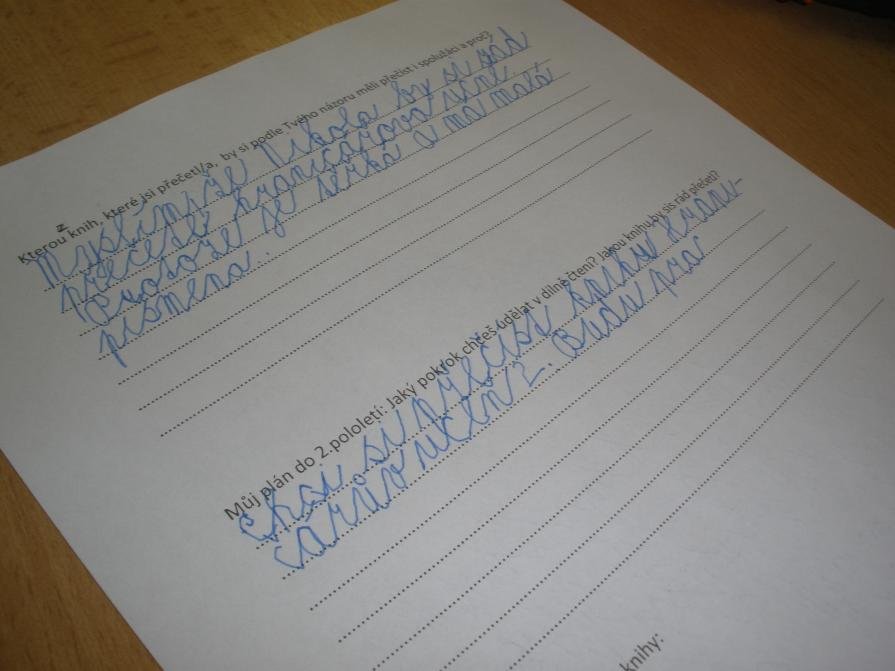 Kterou z knih, které jsi přečetl/a, by si podle Tvého názoru měli přečíst i spolužáci a proč?
Myslím, že Nikola by si rád
přečetl hraničářova učně.
Protože je a má malá
písmena.
Můj plán do 2.pololetí: Jaký pokrok chceš udělat v dílně čtení? Jakou knihu by sis rád přečetl?
Chci si přečíst knihu Hrani-
čárův učeň 2. Budu pra
knihy: